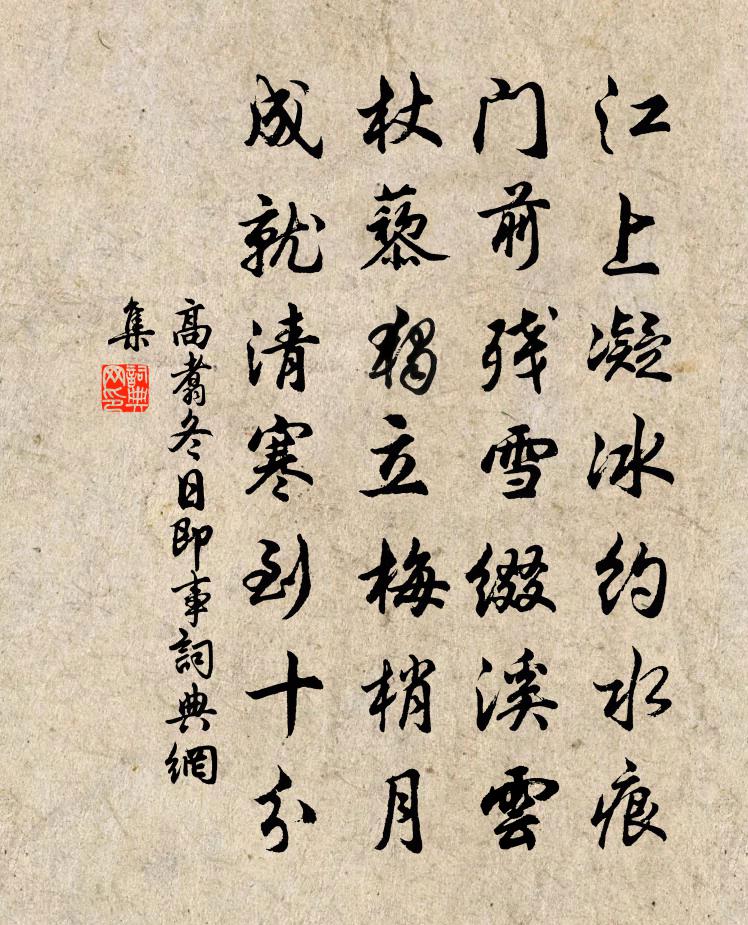 江上凝冰約水痕
门前残雪缀溪雲
杖藜獨立梅梢月
成就清寒到十分
高翥冬日即事詞典網
集
詞典
网印